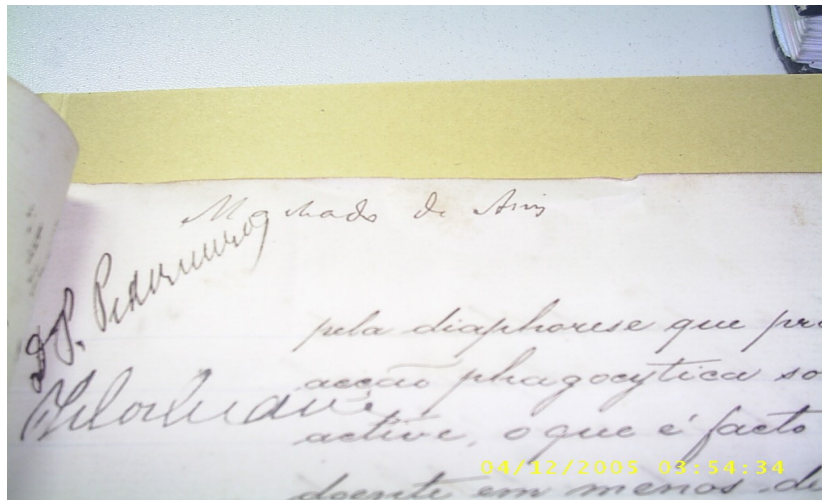 Machado de Assis
D. P. Pederneiras
pela diaphorese que pr
acção phagocytica so
active, o que é facto
doente em menos de
04/12/2005 03:54:34